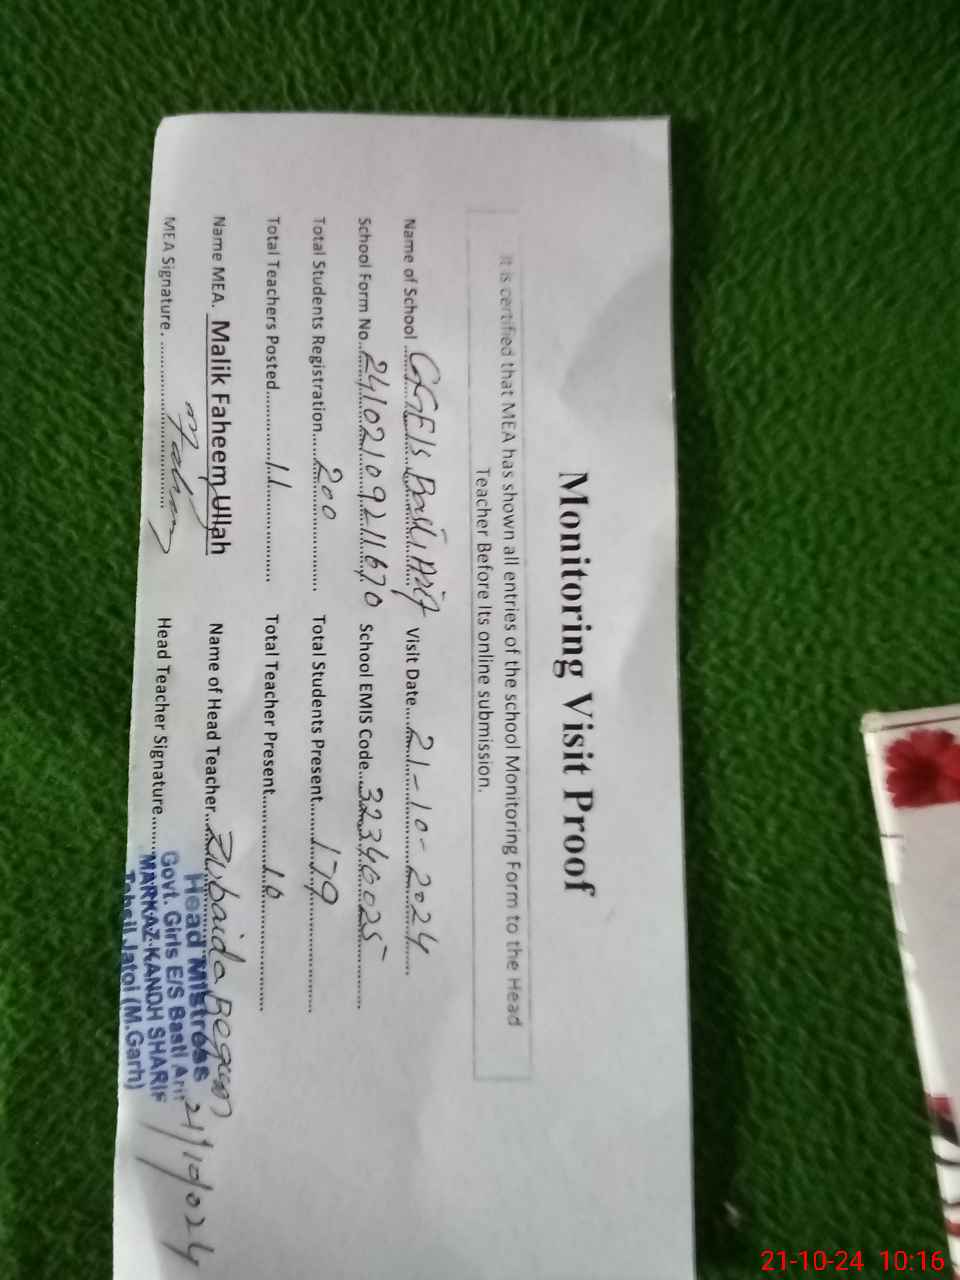 Monitoring Visit Proof
It is certified that MEA has shown all entries of the school Monitoring Form to the Head
Teacher Before Its online submission.
Name of School GGE/S Basti Arif Visit Date 21-10-2024
School Form No. 24102109211670 School EMIS Code 32340025
Total Students Registration 200 Total Students Present 179
Total Teachers Posted 11 Total Teacher Present 10
Name MEA. Malik Faheem Ullah Name of Head Teacher Zubaida Begum
MEA Signature. Head Teacher Signature
Head Mistress
Govt. Girls E/S Basti Arif
MARKAZ KANDH SHARIF
Tehsil Jatoi (M.Garh)
21/10/024
21-10-24 10:16